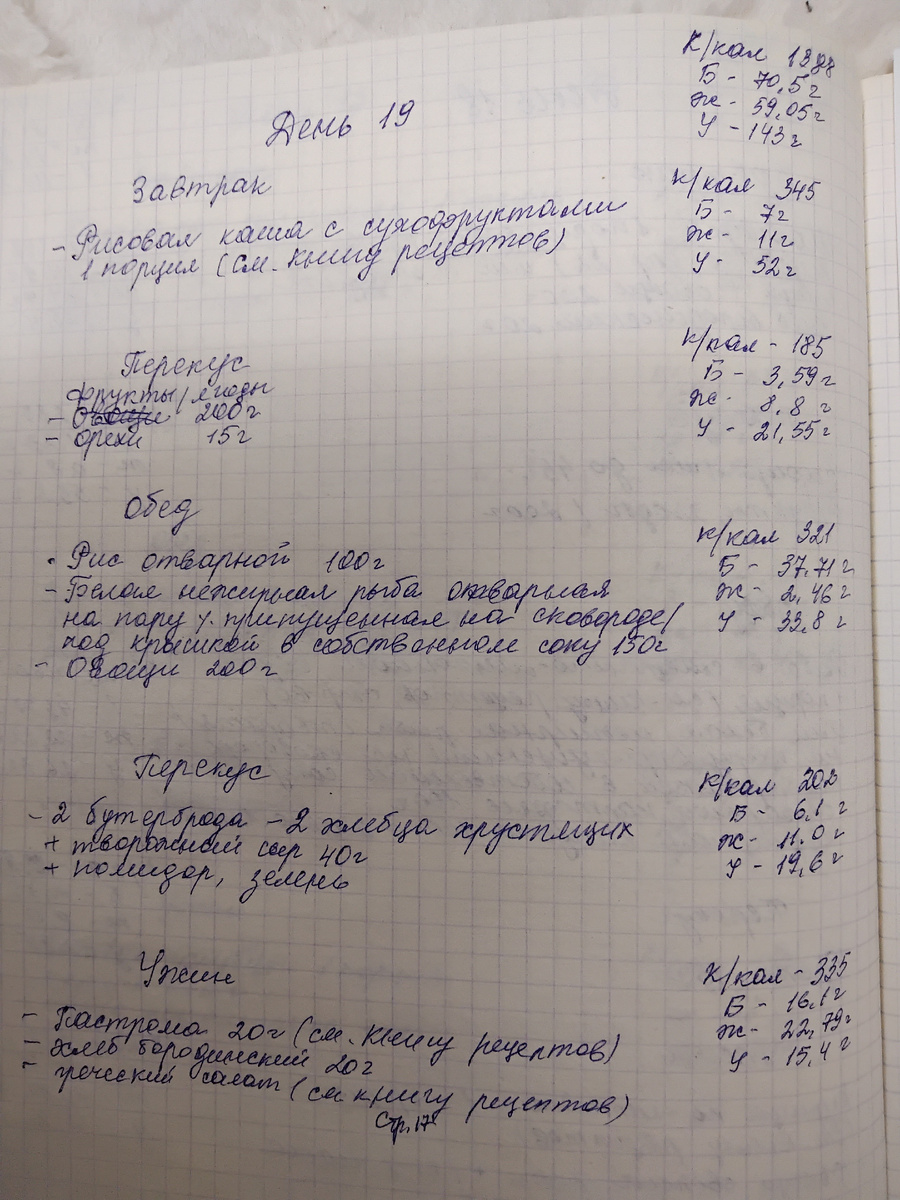 К/кал 1388
Б - 70,5г
Ж - 59,05г
У - 143г
День 19
Завтрак
- Рисовая каша с сухофруктами
1 порция (см. книгу рецептов)
К/кал 345
Б - 7г
Ж - 11г
У - 52г
Перекус
фрукты/ягоды
- Овощи 200г
- орехи 15г
К/кал - 185
Б - 3,59г
Ж - 8,8 г
У - 21,55г
Обед
• Рис отварной 100г
- Белая нежирная рыба отварная
на пару / припущенная на сковороде/
под крышкой в собственном соку 150г
- Овощи 200г
К/кал 321
Б - 37,71г
Ж - 2,46г
У - 33,8г
Перекус
- 2 бутерброда - 2 хлебца хрустящих
+ творожный сыр 40г
+ помидор, зелень
К/кал 202
Б - 6,1 г
Ж - 11.0г
У - 19,6г
Ужин
- Пастрома 20г (см. книгу рецептов)
- хлеб бородинский 20г
- греческий салат (см книгу рецептов)
Стр. 17
К/кал - 335
Б - 16,1г
Ж - 22,79г
У - 15,4г